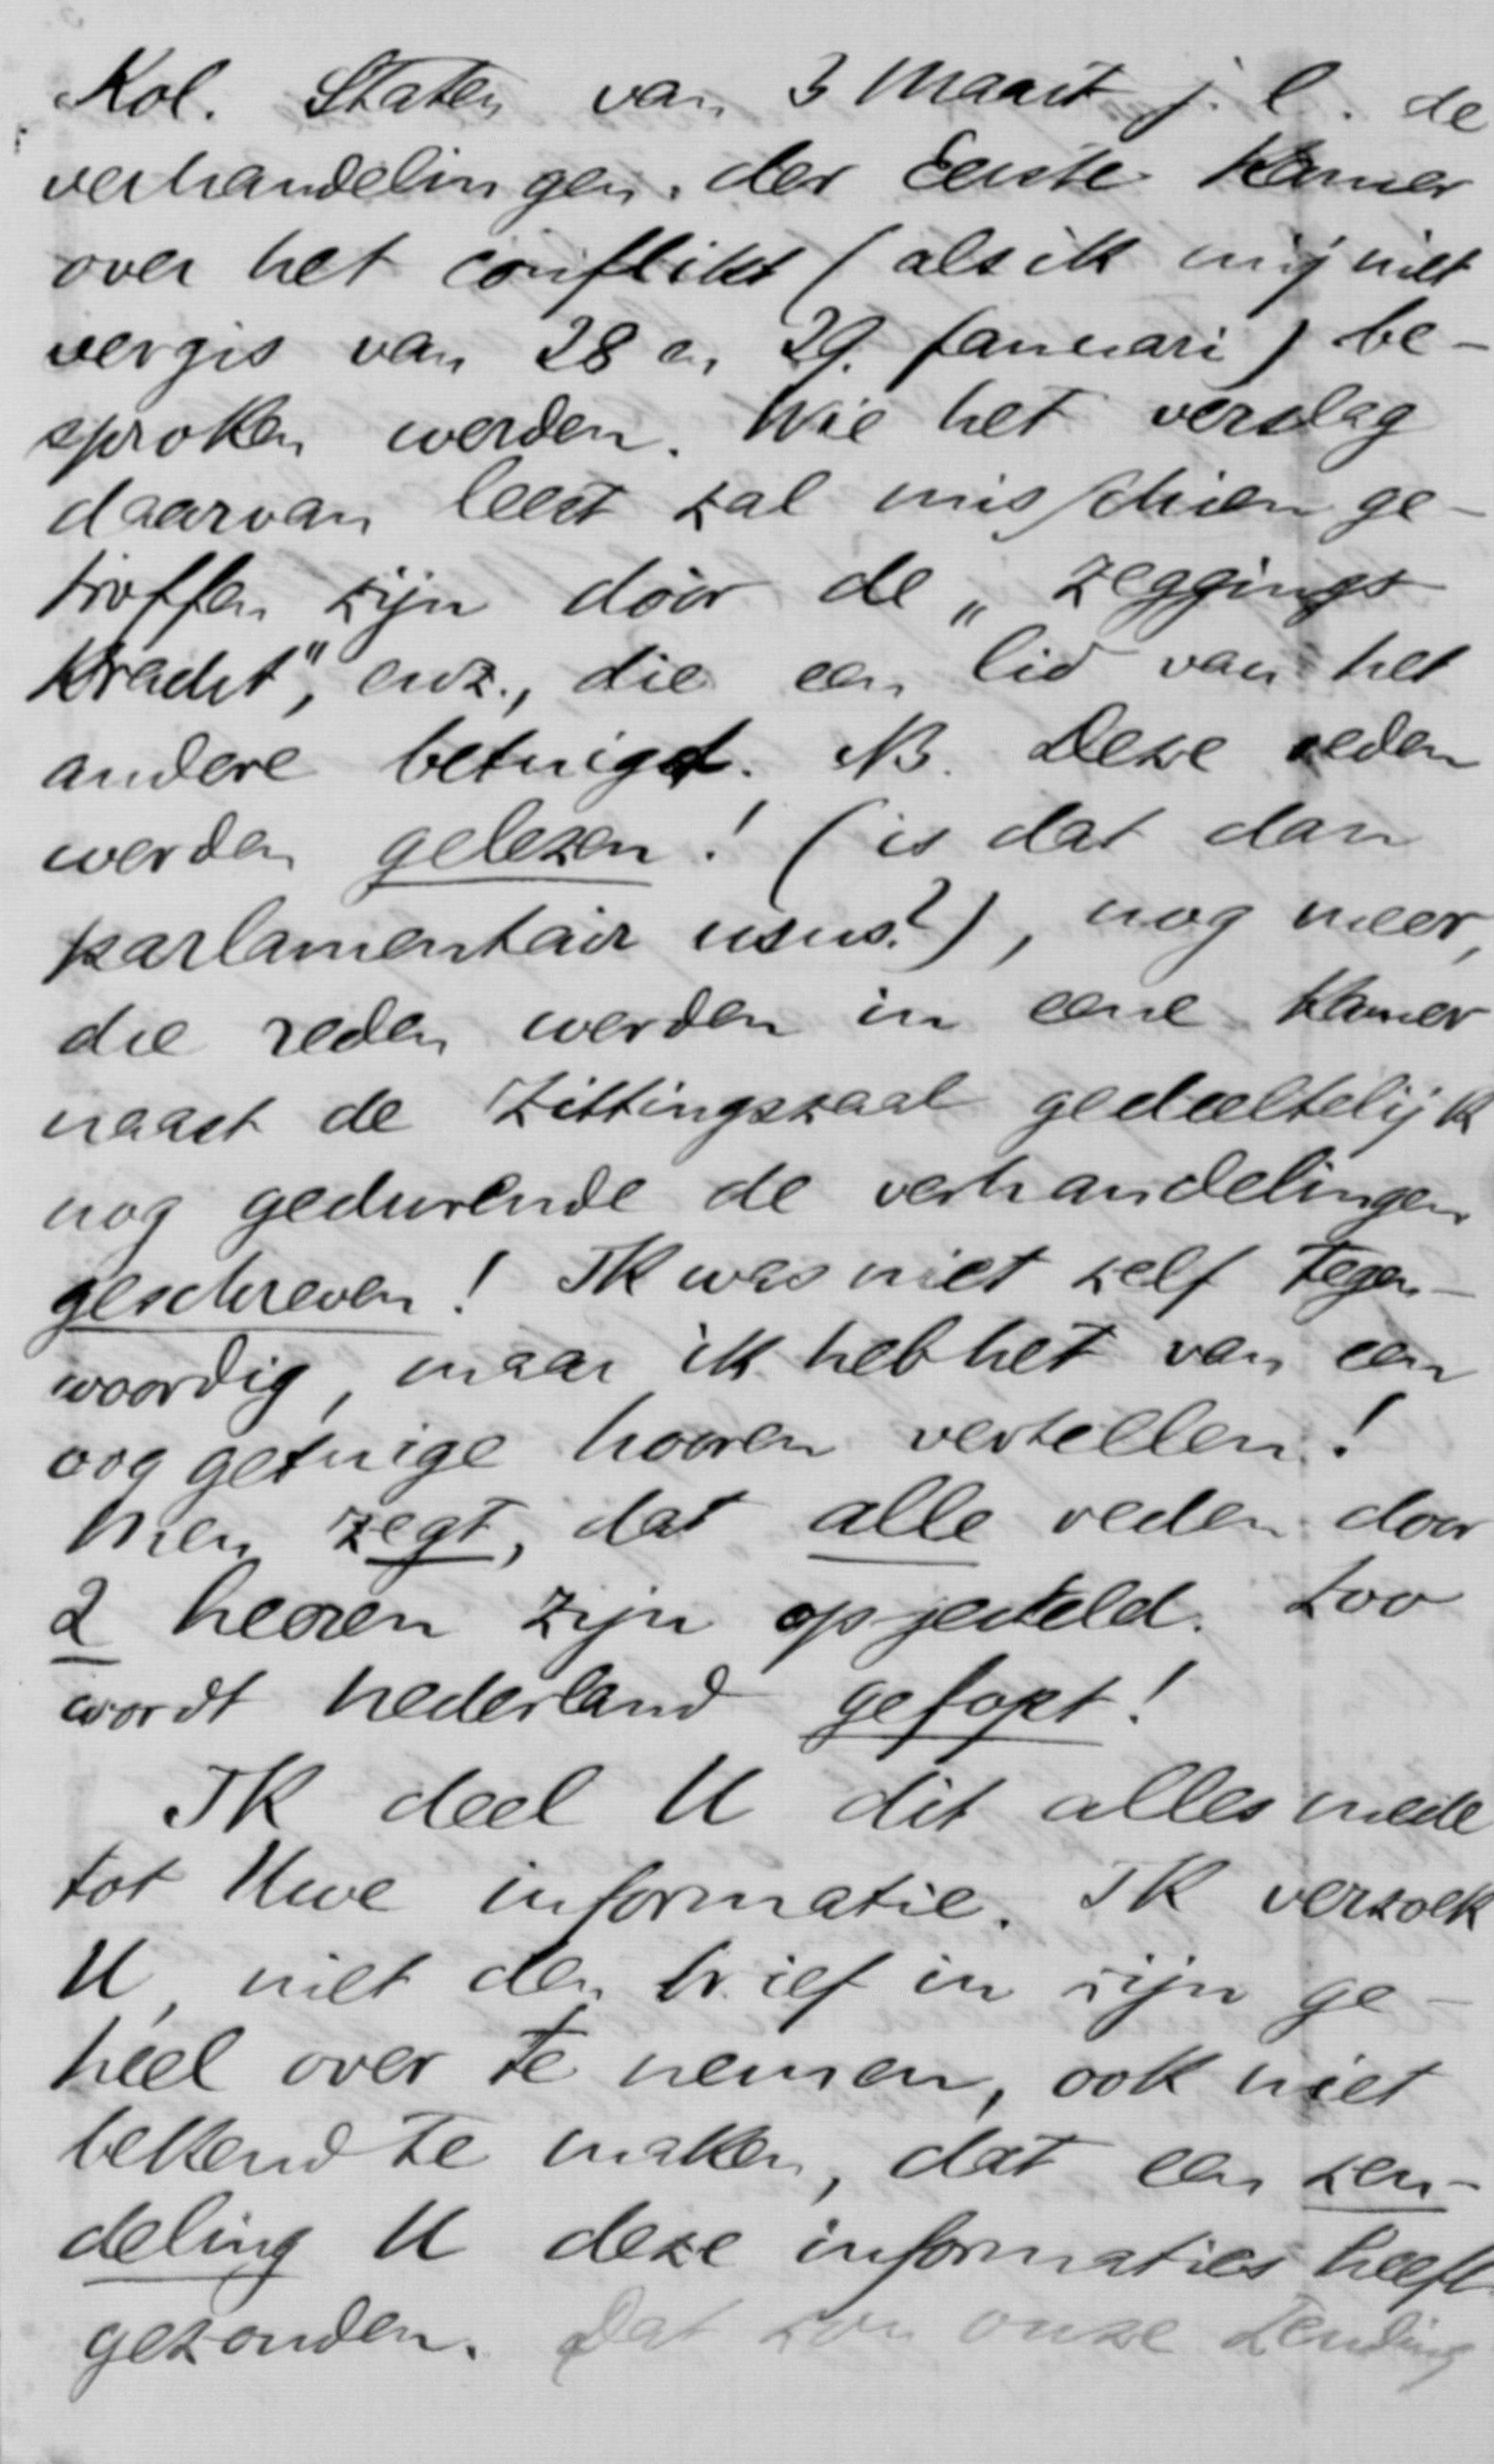 Kol. Staten van 3 Maart j.l. de
verhandelingen der Eerste Kamer
over het conflikt (als ik mij niet
vergis van 28 en 29. Januari) be-
sproken werden. Wie het verslag
daarvan leest zal misschien ge-
troffen zijn door de „zeggings
kracht", enz., die een lid van het
andere betuigt. NB. Deze reden
werden gelezen! (is dat dan
parlamentair usus?), nog meer,
die reden werden in eene Kamer
naast de Zittingszaal gedeeltelijk
nog gedurende de verhandelingen
geschreven! Ik was niet zelf tegen-
woordig, maar ik heb het van een
ooggetuige hooren vertellen!
Men zegt, dat alle reden door
2 heeren zijn opgesteld. Zoo
wordt Nederland gefopt!
Ik deel U dit alles mede
tot Uwe informatie. Ik verzoek
U, niet den brief in zijn ge-
heel over te nemen, ook niet
bekend te maken, dat een zen-
deling U deze informaties heeft
gezonden. Dat zou onze Zending